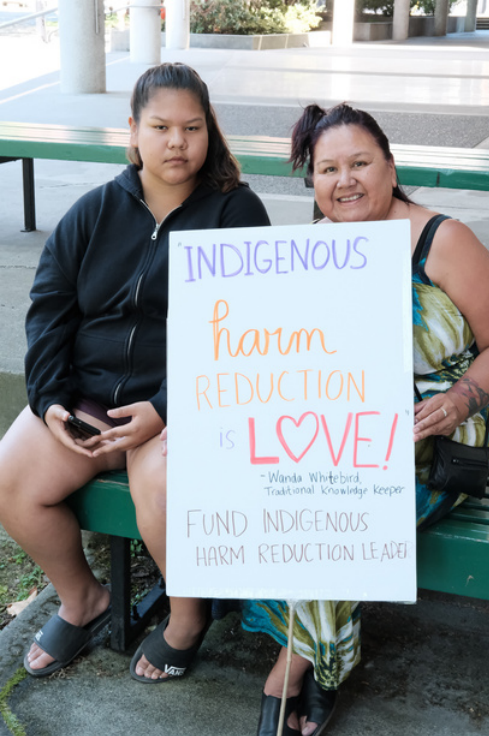 "INDIGENOUS
harm
REDUCTION
is LOVE!"
- Wanda Whitebird,
Traditional Knowledge Keeper
FUND INDIGENOUS
HARM REDUCTION LEADER
VANS